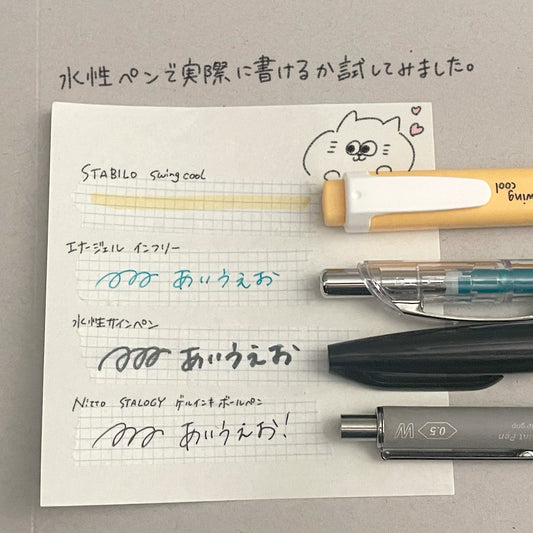 水性ペンで実際に書けるか試してみました。
STABILO swing cool
wing
cool
エナージェル インフリー
あいうえお
水性サインペン
あいうえお
Nitto STALOGY ゲルインキボールペン
あいうえお!
0.5